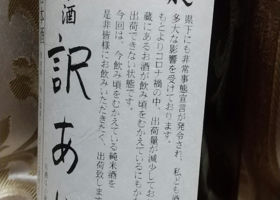 県下にも非常事態宣言が発令され、私ども酒
多大な影響を受けております。
もとよりコロナ禍の中、出荷量が減少してお
蔵にあるお酒が飲み頃をむかえているにもか
出荷できない状態です。
今回は、今飲み頃をむかえている純米酒を
是非皆様にお飲みいただきたく、出荷致しま
酒
訳あり